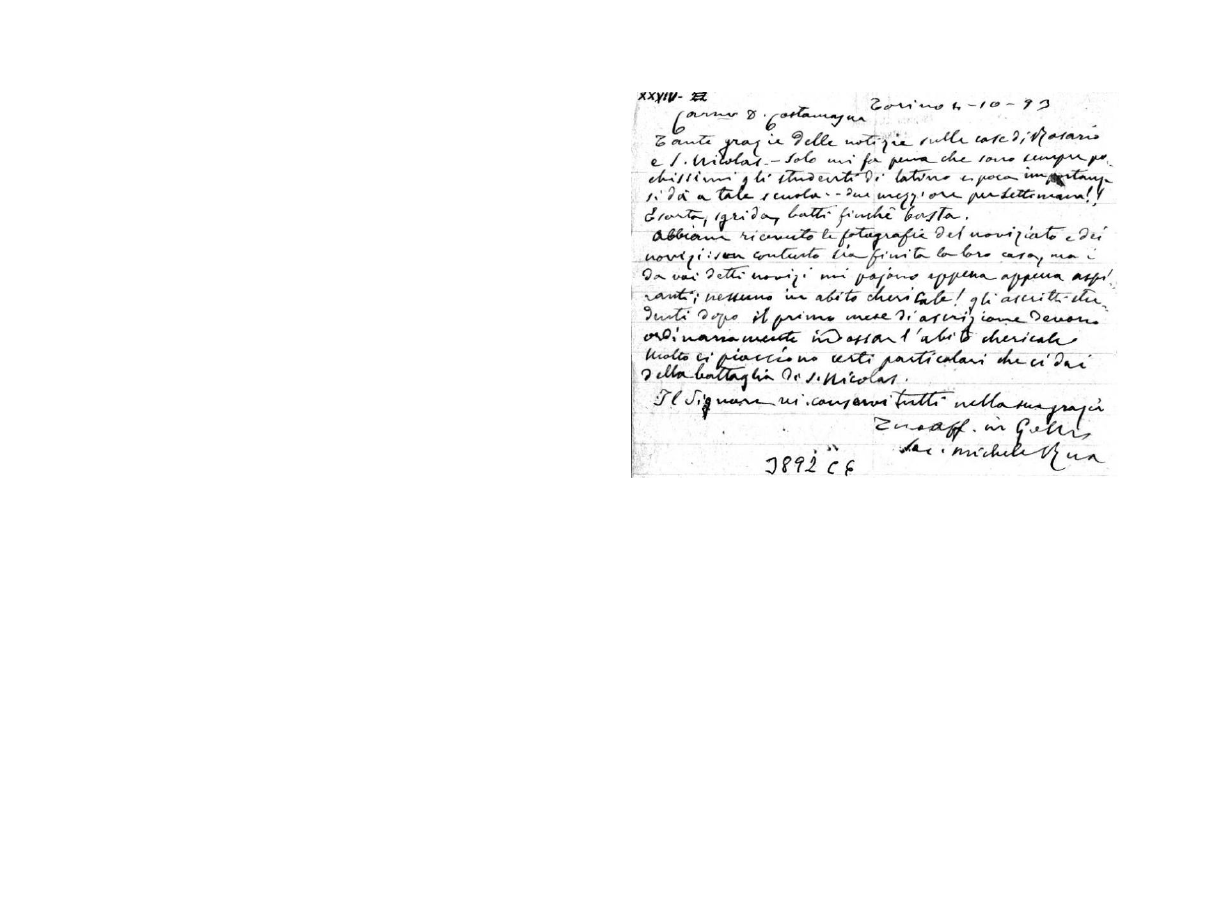 XXVIV- 22
Torino 4-10-93
Carmo D. Costamagna
Tante grazie delle notizie sulle case di Rosario
e S. Nicolas.- Solo mi fa pena che sono sempre po-
chissimi gli studenti di latino e poca importanza
si dà a tale scuola -- due mezz'ore per settimana!!
Esorta, sgrida, batti finchè basta.
Abbiam ricevuto le fotografie del noviziato e dei
novizi: son contento sia finita la loro casa, ma i
da voi detti novizi mi pajono appena appena aspi-
ranti; nessuno in abito chericale! gli ascritti stu-
denti dopo il primo mese di ascrizione devono
ordinariamente indossar l'abito chericale
Molto ci piacciono certi particolari che ci dai
della battaglia di S. Nicolas.
Il Signore vi conservi tutti nella sua grazia
Tuo aff. in G.
Sac. Michele Rua
3892 C 6